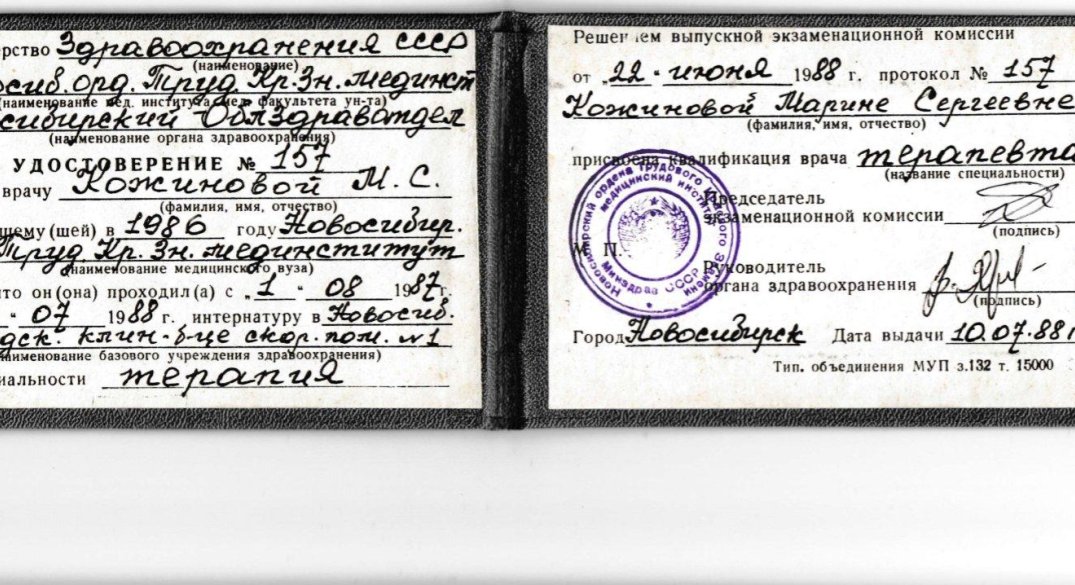 ерство Здравоохранения СССР
(наименование)
осиб. орд. Труд. Кр. Зн. мединст
(наименование мед. института, мед. факультета ун-та)
сибирский Облздравотдел
(наименование органа здравоохранения)
УДОСТОВЕРЕНИЕ № 157
врачу Кожиновой М. С.
(фамилия, имя, отчество)
шему (шей) в 1986 году Новосибир.
Труд. Кр. Зн. мединститут
(наименование медицинского вуза)
что он (она) проходил (а) с „1" 08 1987 г.
" 07 1988 г. интернатуру в Новосиб.
дск. клин. б-це скор. пом. №1
(наименование базового учреждения здравоохранения)
иальности терапия
Решением выпускной экзаменационной комиссии
от „22" июня 1988 г. протокол № 157
Кожиновой Марине Сергеевне
(фамилия, имя, отчество)
присвоена квалификация врача терапевта
(название специальности)
Председатель
экзаменационной комиссии
(подпись)
М. П.
Руководитель
органа здравоохранения
(подпись)
Город Новосибирск Дата выдачи 10.07.88 г
Тип. объединения МУП з.132 т. 15000
Новосибирский ордена Трудового Красного Знамени
медицинский институт
Минздрав СССР